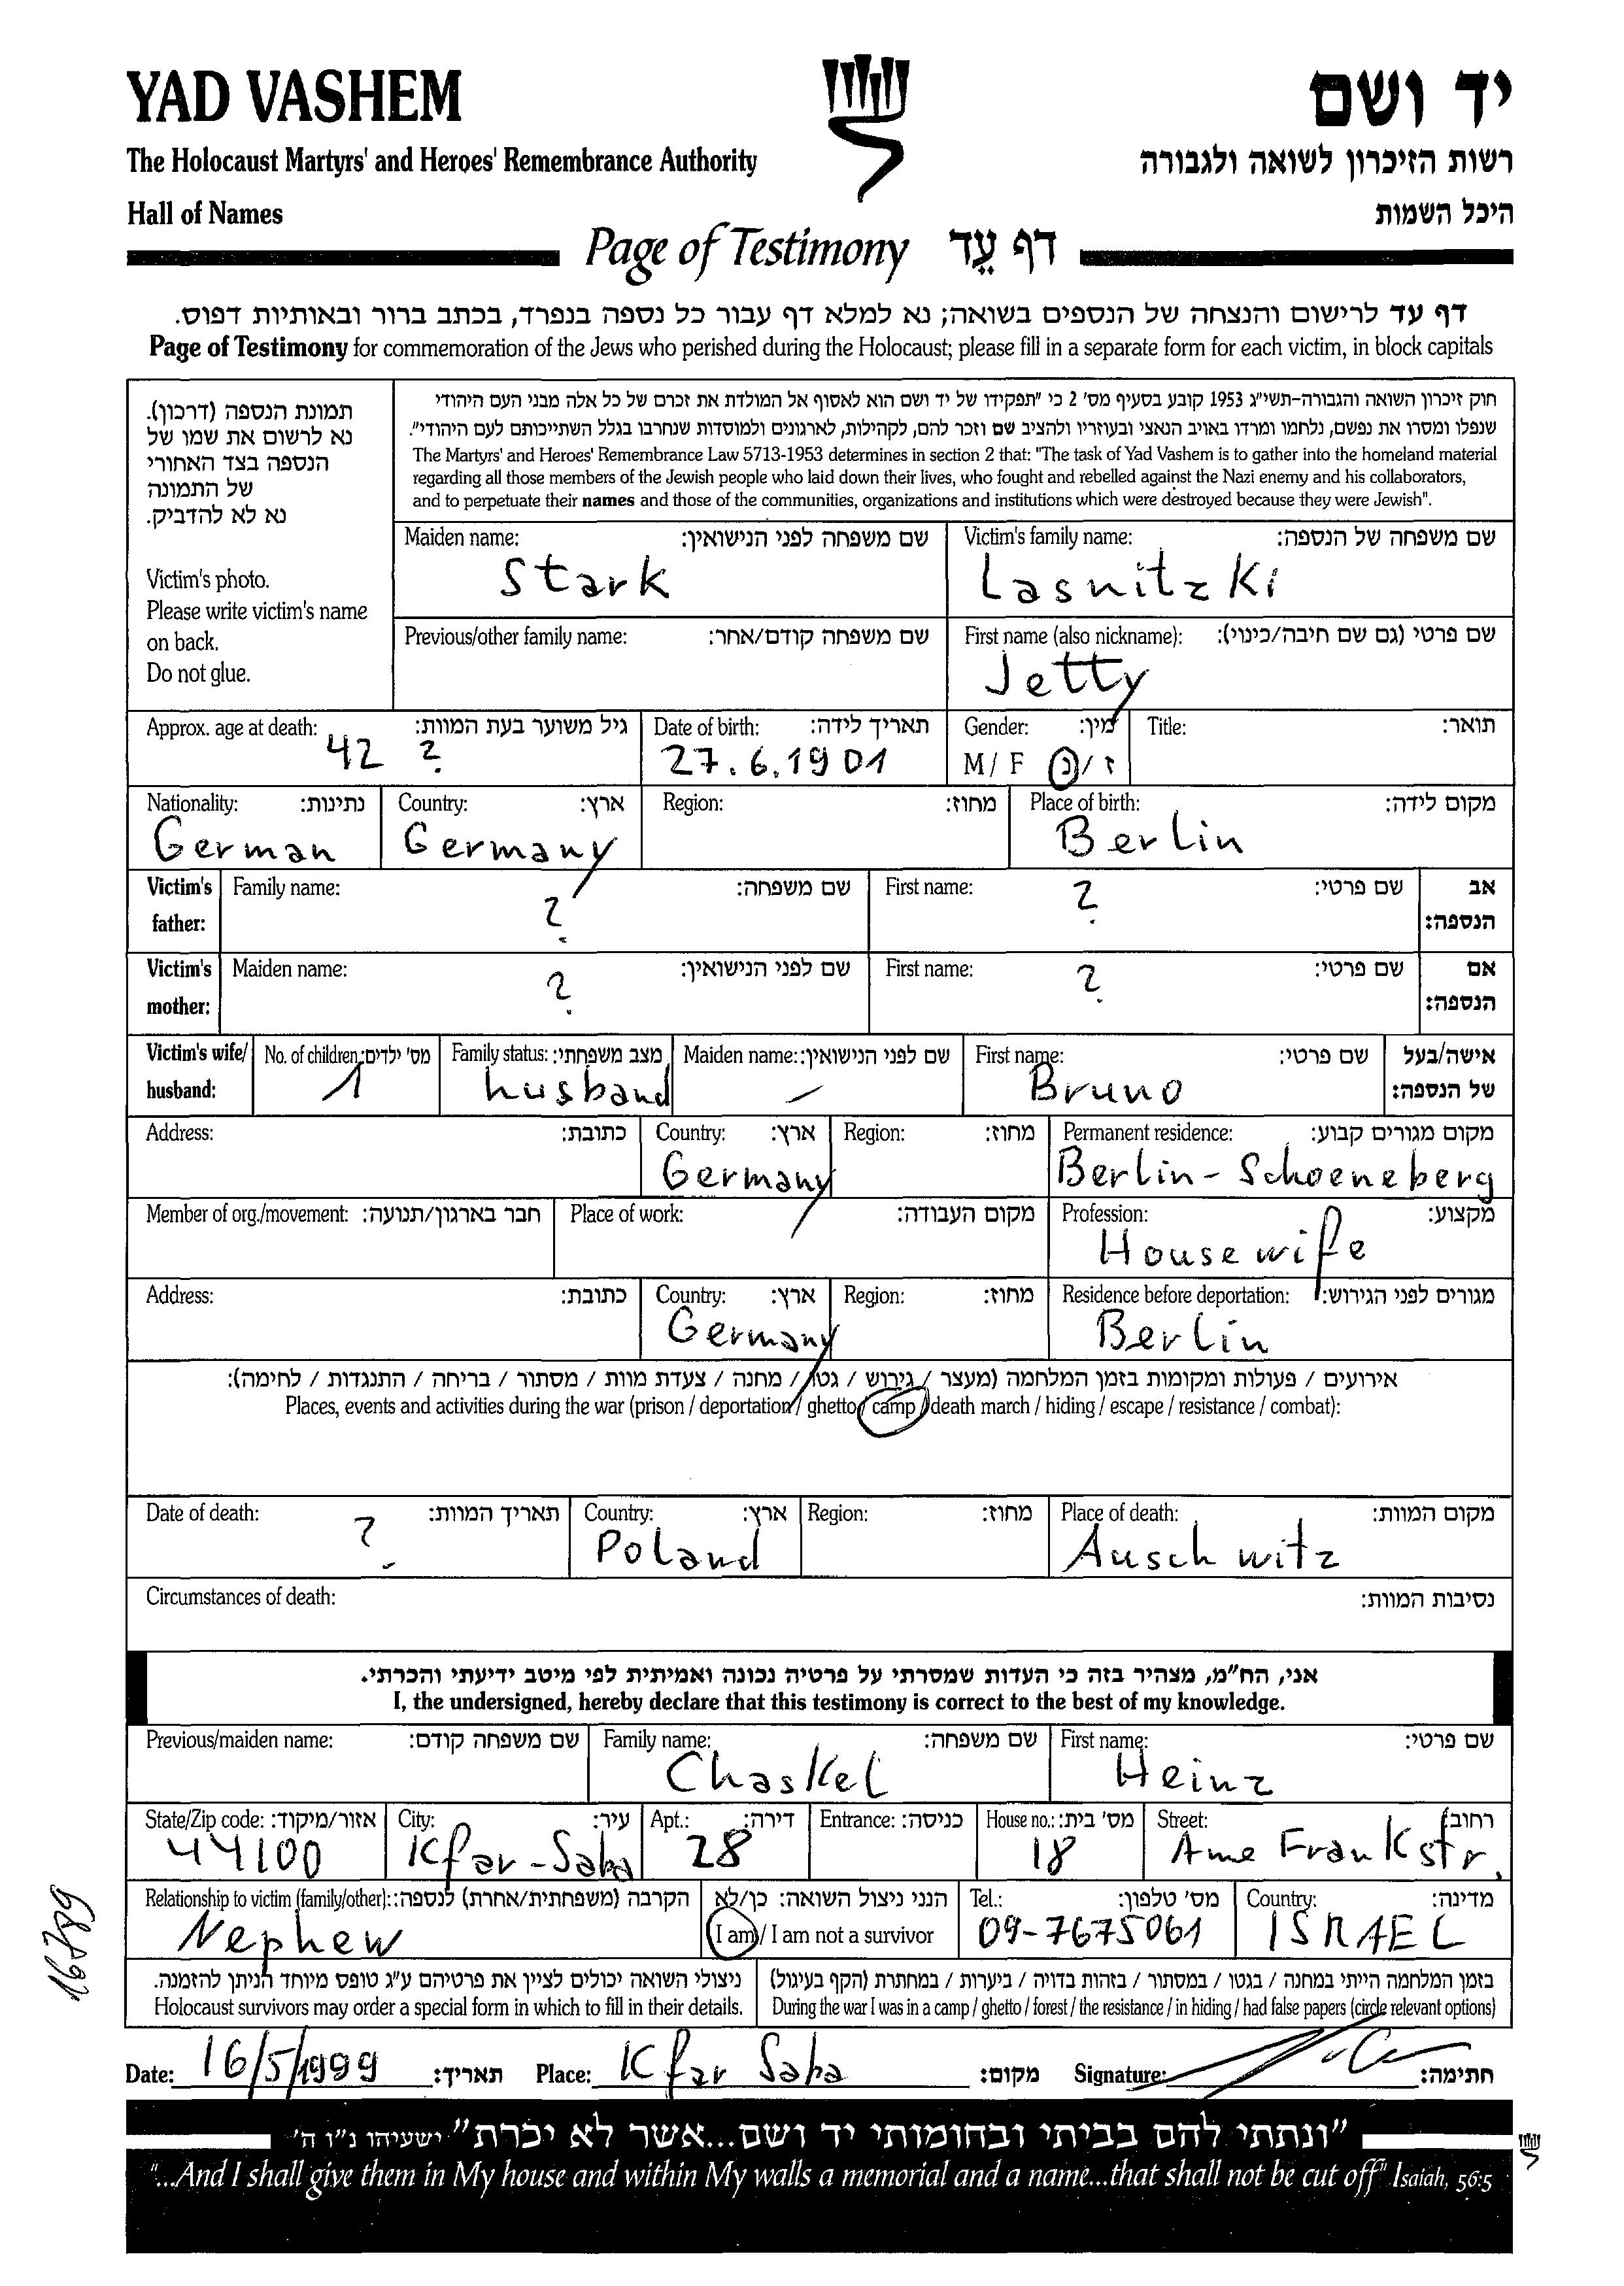 YAD VASHEM
יד ושם
The Holocaust Martyrs' and Heroes' Remembrance Authority
רשות הזיכרון לשואה ולגבורה
Hall of Names
היכל השמות
Page of Testimony דף עֵד
דף עד לרישום והנצחה של הנספים בשואה; נא למלא דף עבור כל נספה בנפרד, בכתב ברור ובאותיות דפוס.
Page of Testimony for commemoration of the Jews who perished during the Holocaust; please fill in a separate form for each victim, in block capitals
תמונת הנספה (דרכון).
נא לרשום את שמו של
הנספה בצד האחורי
של התמונה
נא לא להדביק.
Victim's photo.
Please write victim's name
on back.
Do not glue.
חוק זיכרון השואה והגבורה-תשי"ג 1953 קובע בסעיף מס' 2 כי "תפקידו של יד ושם הוא לאסוף אל המולדת את זכרם של כל אלה מבני העם היהודי
שנפלו ומסרו את נפשם, נלחמו ומרדו באויב הנאצי ובעוזריו ולהציב שם וזכר להם, לקהילות, לארגונים ולמוסדות שנחרבו בגלל השתייכותם לעם היהודי".
The Martyrs' and Heroes' Remembrance Law 5713-1953 determines in section 2 that: "The task of Yad Vashem is to gather into the homeland material
regarding all those members of the Jewish people who laid down their lives, who fought and rebelled against the Nazi enemy and his collaborators,
and to perpetuate their names and those of the communities, organizations and institutions which were destroyed because they were Jewish".
Maiden name: שם משפחה לפני הנישואין: Victim's family name: שם משפחה של הנספה:
Stark Lasnitzki
Previous/other family name: שם משפחה קודם/אחר: First name (also nickname): שם פרטי (גם שם חיבה/כינוי):
Jetty
Approx. age at death: גיל משוער בעת המוות: Date of birth: תאריך לידה: Gender: מין: Title: תואר:
42 ? 27.6.1901 M / F נ / ז
Nationality: נתינות: Country: ארץ: Region: מחוז: Place of birth: מקום לידה:
German Germany Berlin
Victim's father: Family name: שם משפחה: First name: שם פרטי: אב הנספה:
? ?
Victim's mother: Maiden name: שם לפני הנישואין: First name: שם פרטי: אם הנספה:
? ?
Victim's wife/ husband: No. of children: מס' ילדים: Family status: מצב משפחתי: Maiden name: שם לפני הנישואין: First name: שם פרטי: אישה/בעל של הנספה:
1 husband — Bruno
Address: כתובת: Country: ארץ: Region: מחוז: Permanent residence: מקום מגורים קבוע:
Germany Berlin-Schoeneberg
Member of org./movement: חבר בארגון/תנועה: Place of work: מקום העבודה: Profession: מקצוע:
Housewife
Address: כתובת: Country: ארץ: Region: מחוז: Residence before deportation: מגורים לפני הגירוש:
Germany Berlin
אירועים / פעולות ומקומות בזמן המלחמה (מעצר / גירוש / גטו / מחנה / צעדת מוות / מסתור / בריחה / התנגדות / לחימה):
Places, events and activities during the war (prison / deportation / ghetto / camp / death march / hiding / escape / resistance / combat):
Date of death: תאריך המוות: Country: ארץ: Region: מחוז: Place of death: מקום המוות:
? Poland Auschwitz
Circumstances of death: נסיבות המוות:
אני, הח"מ, מצהיר בזה כי העדות שמסרתי על פרטיה נכונה ואמיתית לפי מיטב ידיעתי והכרתי.
I, the undersigned, hereby declare that this testimony is correct to the best of my knowledge.
Previous/maiden name: שם משפחה קודם: Family name: שם משפחה: First name: שם פרטי:
Chaskel Heinz
State/Zip code: אזור/מיקוד: City: עיר: Apt.: דירה: Entrance: כניסה: House no.: מס' בית: Street: רחוב:
44100 Kfar-Saba 28 18 Anne Frank str.
Relationship to victim (family/other): הקרבה (משפחתית/אחרת) לנספה: הנני ניצול השואה: כן/לא Tel.: מס' טלפון: Country: מדינה:
Nephew I am / I am not a survivor 09-7675061 ISRAEL
ניצולי השואה יכולים לציין את פרטיהם ע"ג טופס מיוחד הניתן להזמנה. בזמן המלחמה הייתי במחנה / בגטו / במסתור / בזהות בדויה / ביערות / במחתרת (הקף בעיגול)
Holocaust survivors may order a special form in which to fill in their details. During the war I was in a camp / ghetto / forest / the resistance / in hiding / had false papers (circle relevant options)
Date: 16/5/1999 תאריך: Place: Kfar Saba מקום: Signature: חתימה:
"ונתתי להם בביתי ובחומותי יד ושם...אשר לא יכרת" ישעיהו נ"ו ה'
"...And I shall give them in My house and within My walls a memorial and a name...that shall not be cut off" Isaiah, 56:5
16789